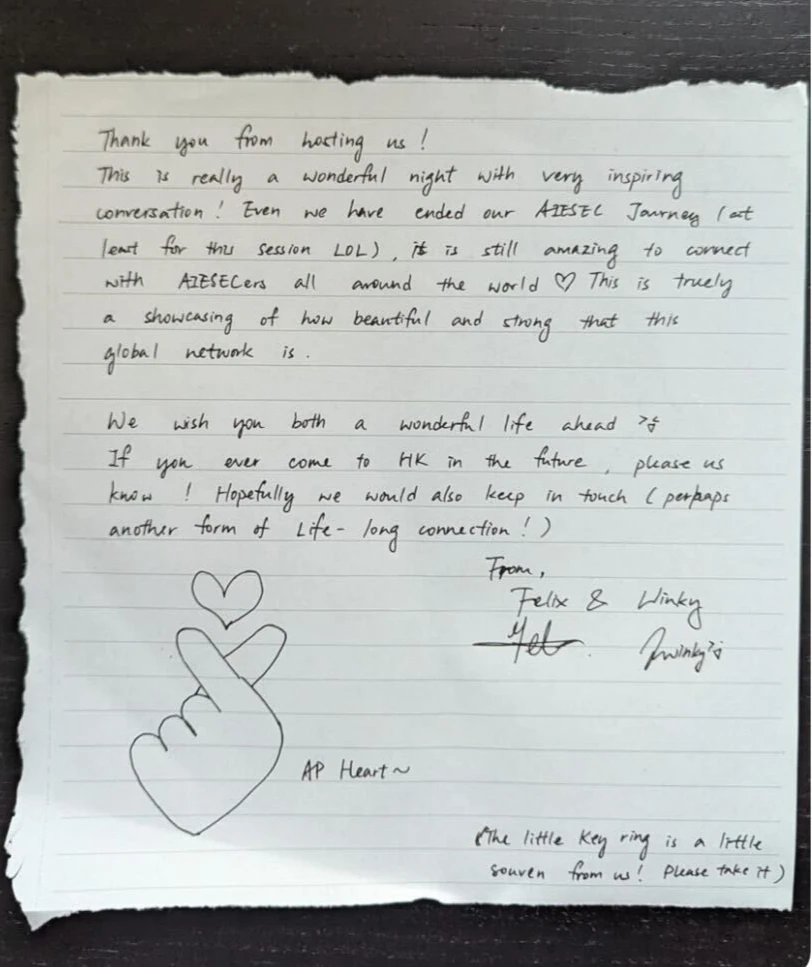 Thank you from hosting us !
This is really a wonderful night with very inspiring
conversation ! Even we have ended our AIESEC Journey (at
least for this session LOL), it is still amazing to connect
with AIESECers all around the world ♡ This is truely
a showcasing of how beautiful and strong that this
global network is .
We wish you both a wonderful life ahead
If you ever come to HK in the future , please us
know ! Hopefully we would also keep in touch ( perpaps
another form of Life- long connection ! )
From,
Felix & Winky
AP Heart ~
(The little key ring is a little
souven from us! Please take it )